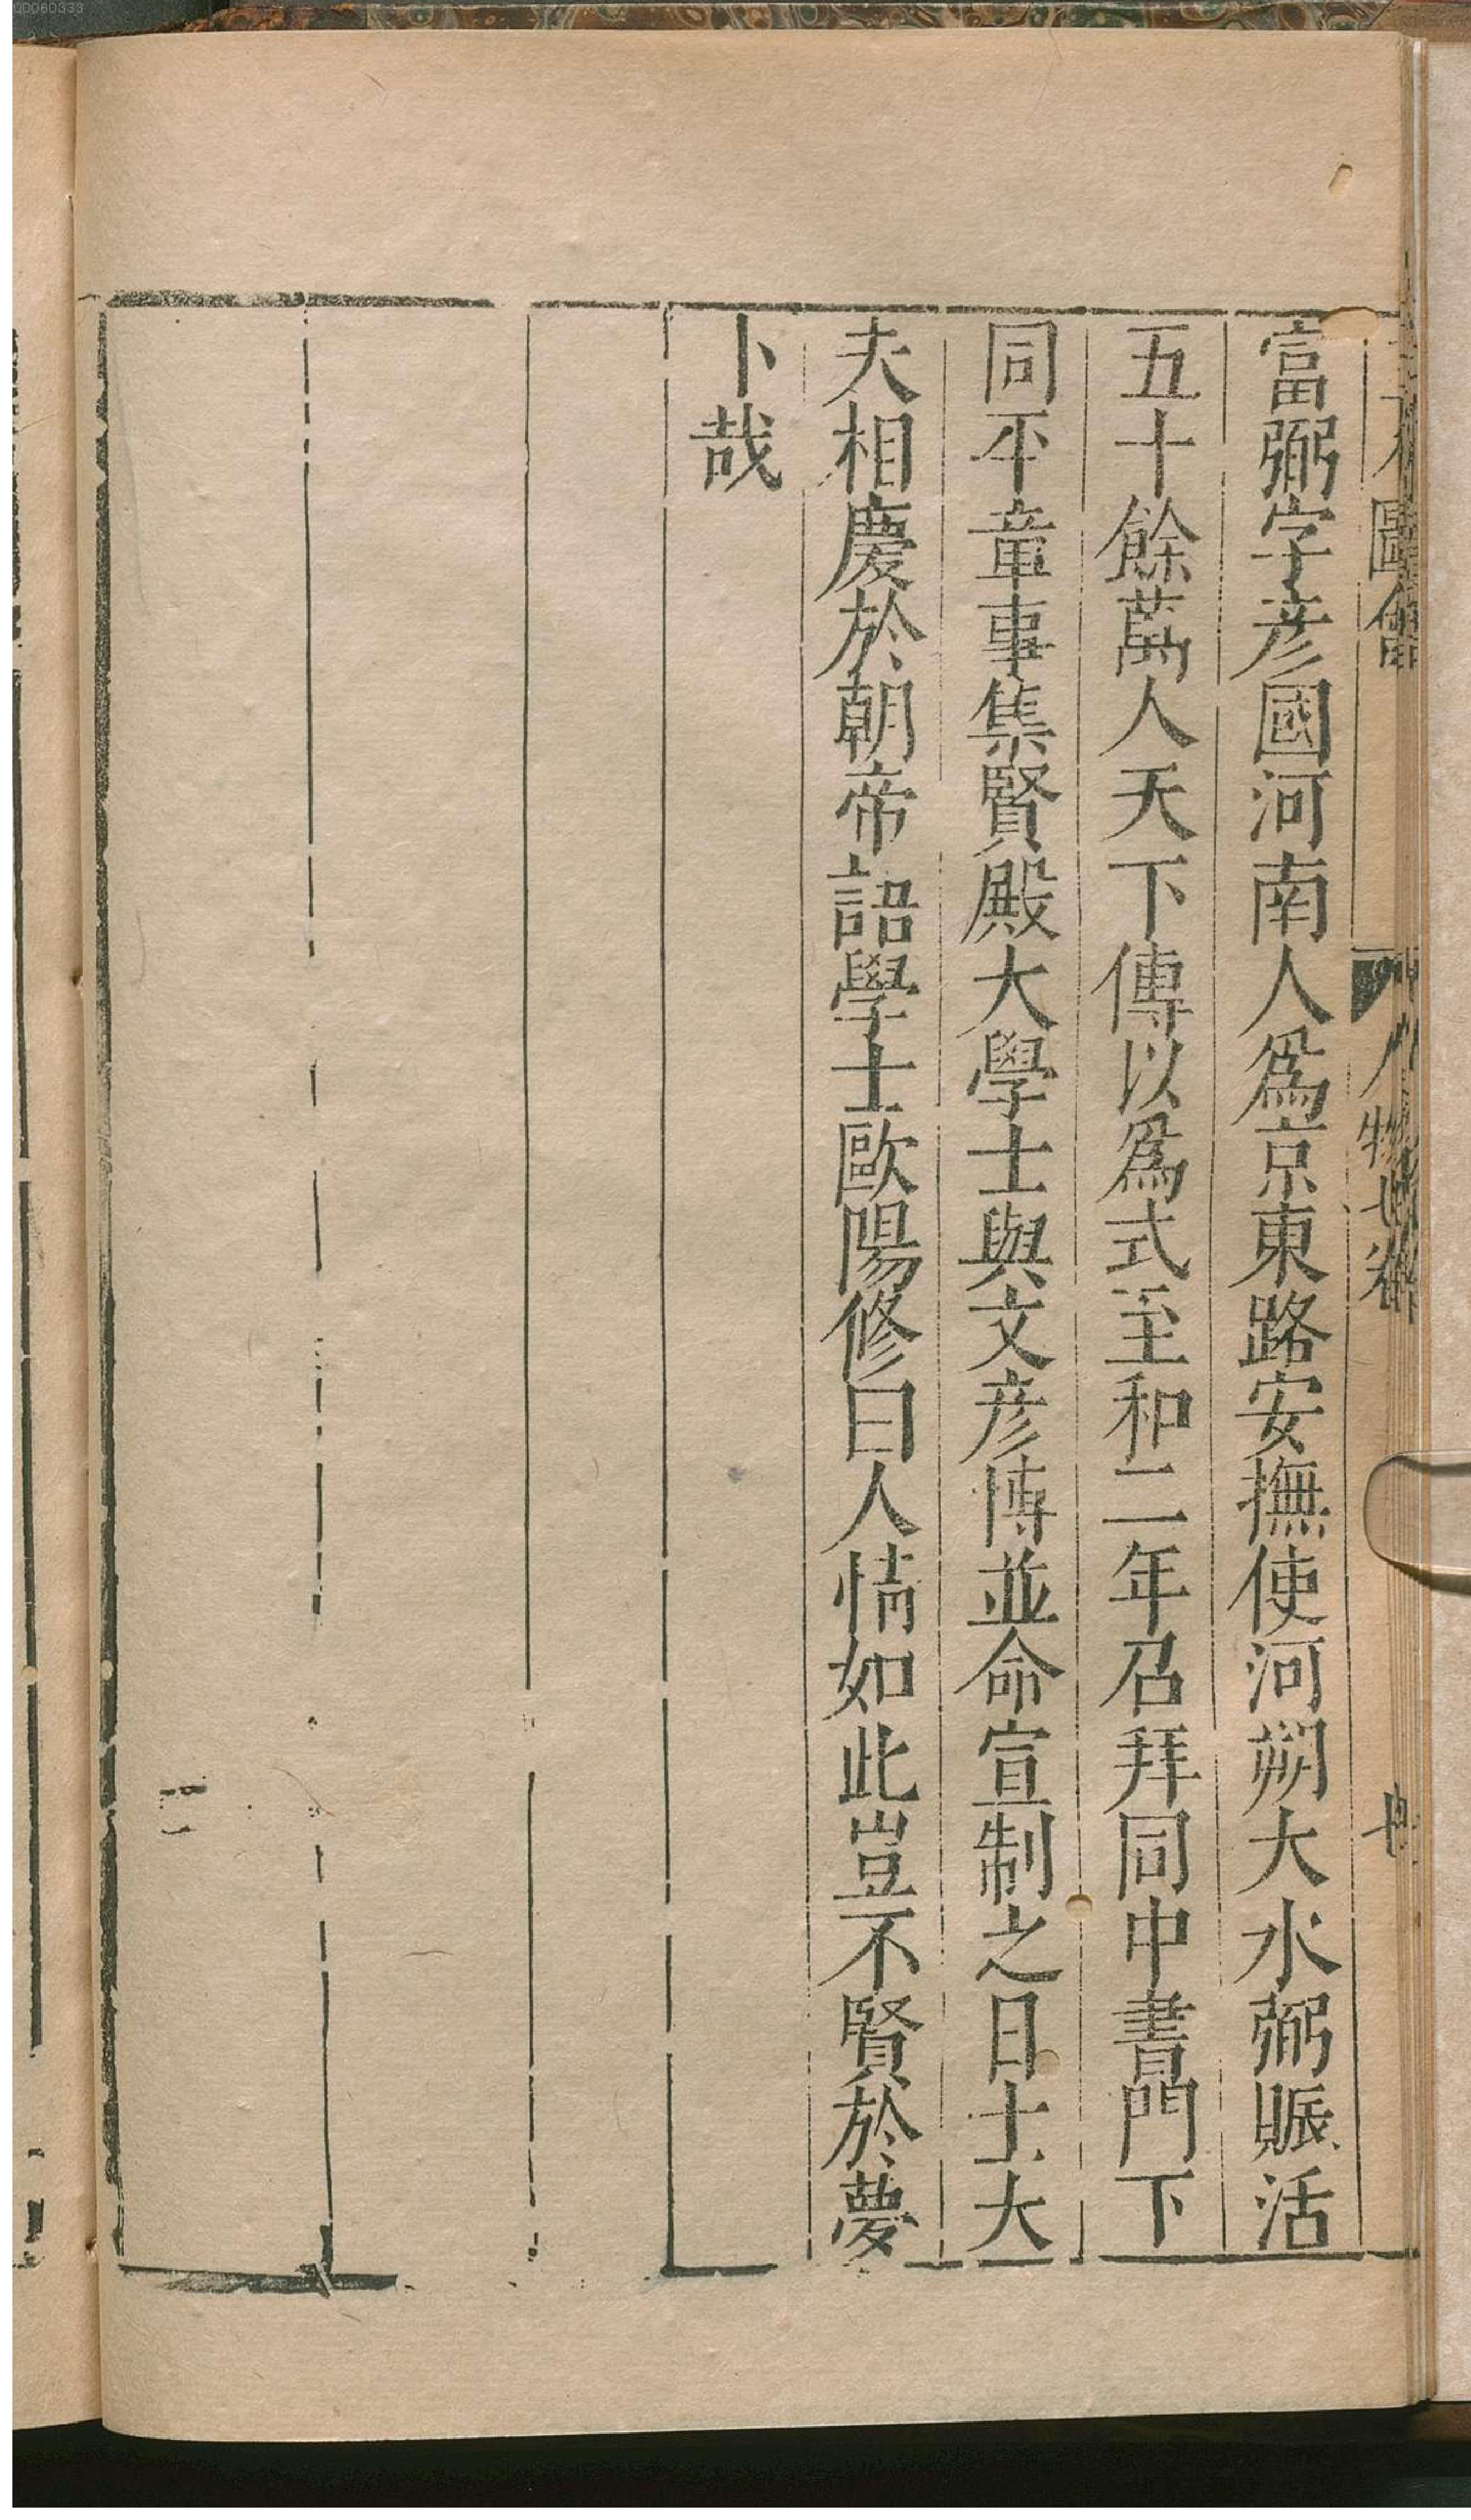 富弼字彦國河南人爲京東路安撫使河朔大水弼賑活
五十餘萬人天下傳以爲式至和二年召拜同中書門下
同平章事集賢殿大學士與文彦博並命宣制之日士大
夫相慶於朝帝語學士歐陽修曰人情如此豈不賢於夢
卜哉
圖會
人物七卷
00060333